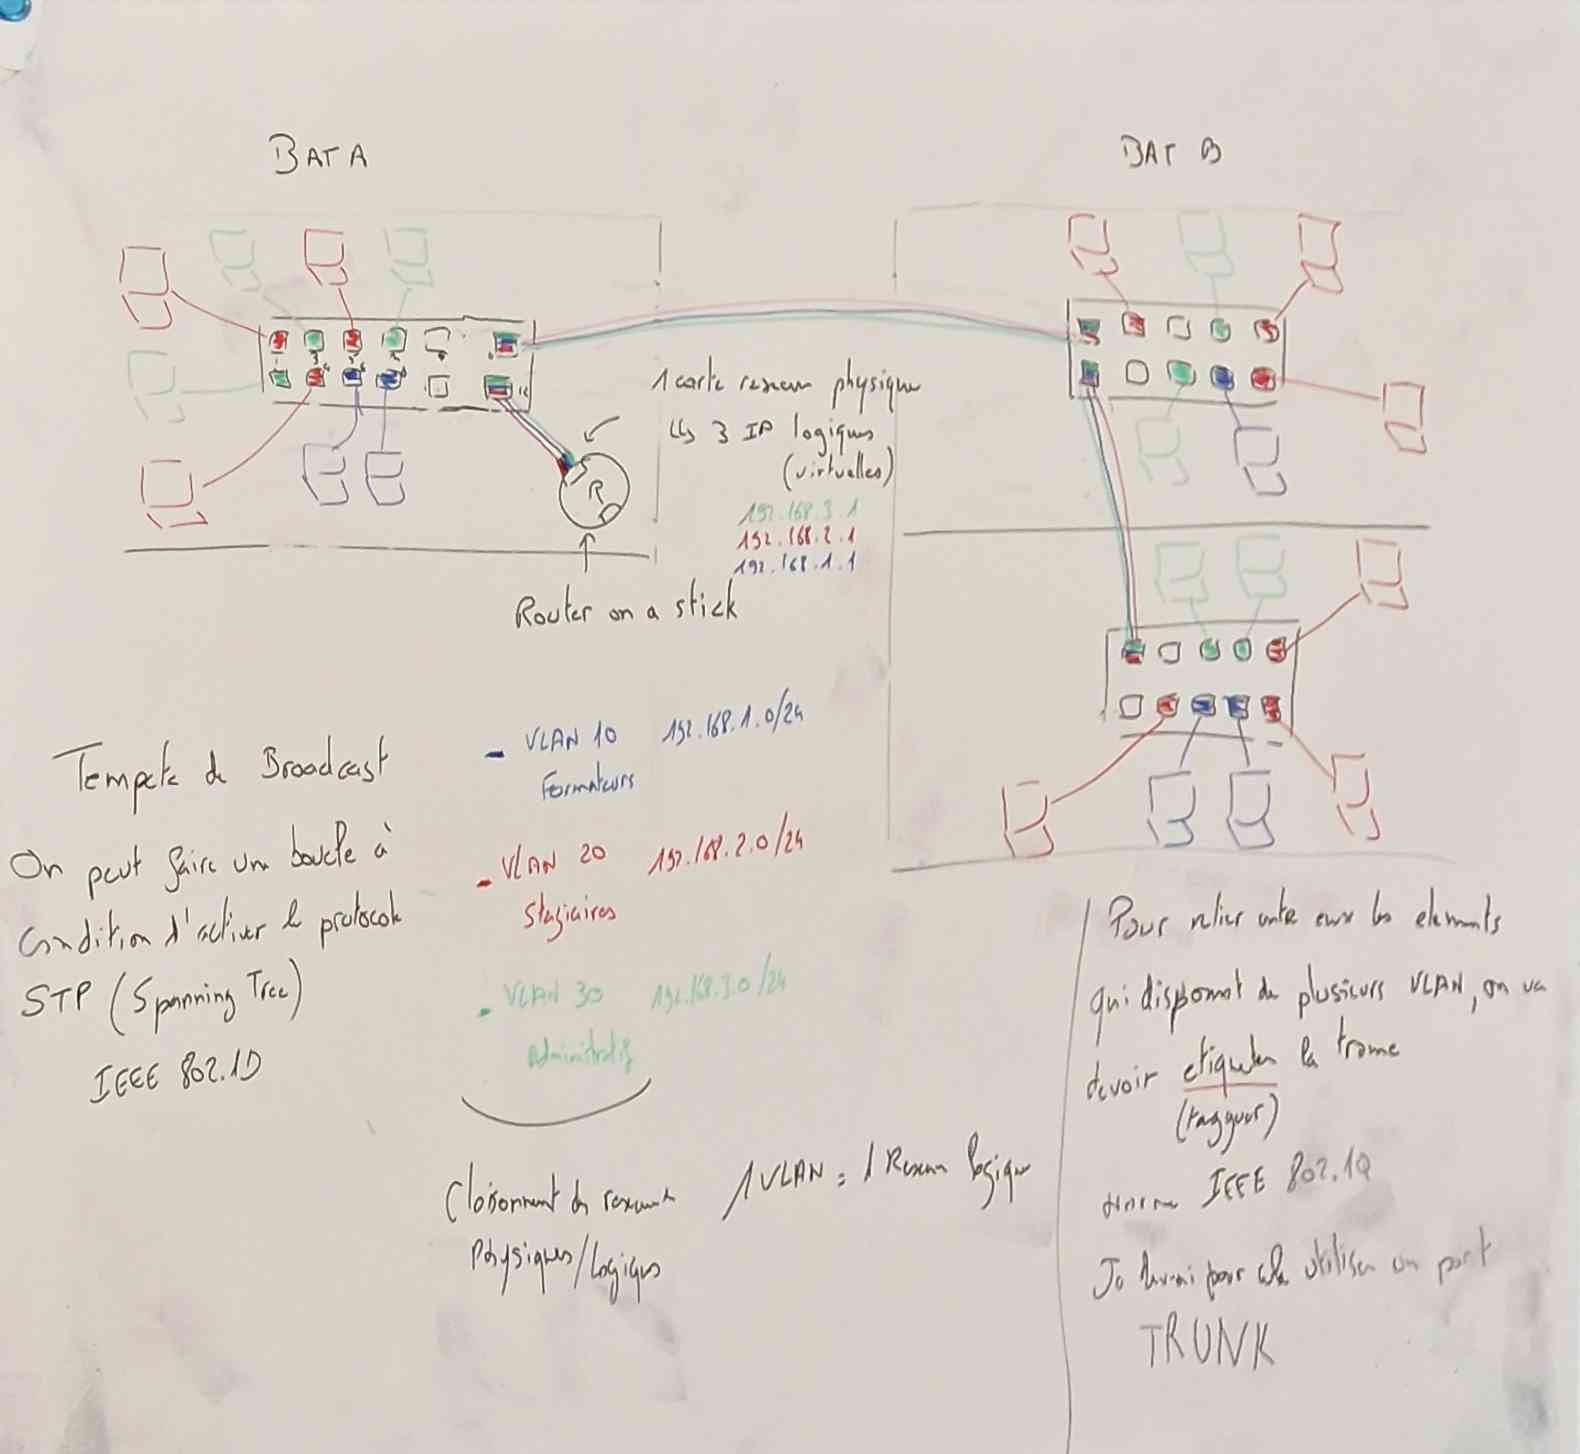 BAT A
BAT B
1 carte reseau physique
↳ 3 IP logiques
(virtuelles)
192.168.3.1
192.168.2.1
192.168.1.1
R
Router on a stick
Tempete de Broadcast
On peut faire une boucle à
condition d'activer le protocole
STP (Spanning Tree)
IEEE 802.1D
- VLAN 10 192.168.1.0/24
Formateurs
- VLAN 20 192.168.2.0/24
Stagiaires
- VLAN 30 192.168.3.0/24
Administratif
Cloisonnent des reseaux
Physiques/Logiques
1 VLAN = 1 Reseau logique
Pour relier entre eux les elements
qui disposent de plusieurs VLAN, on va
devoir etiqueter la trame
(tagguer)
norme IEEE 802.1Q
Je devrai pour cela utiliser un port
TRUNK